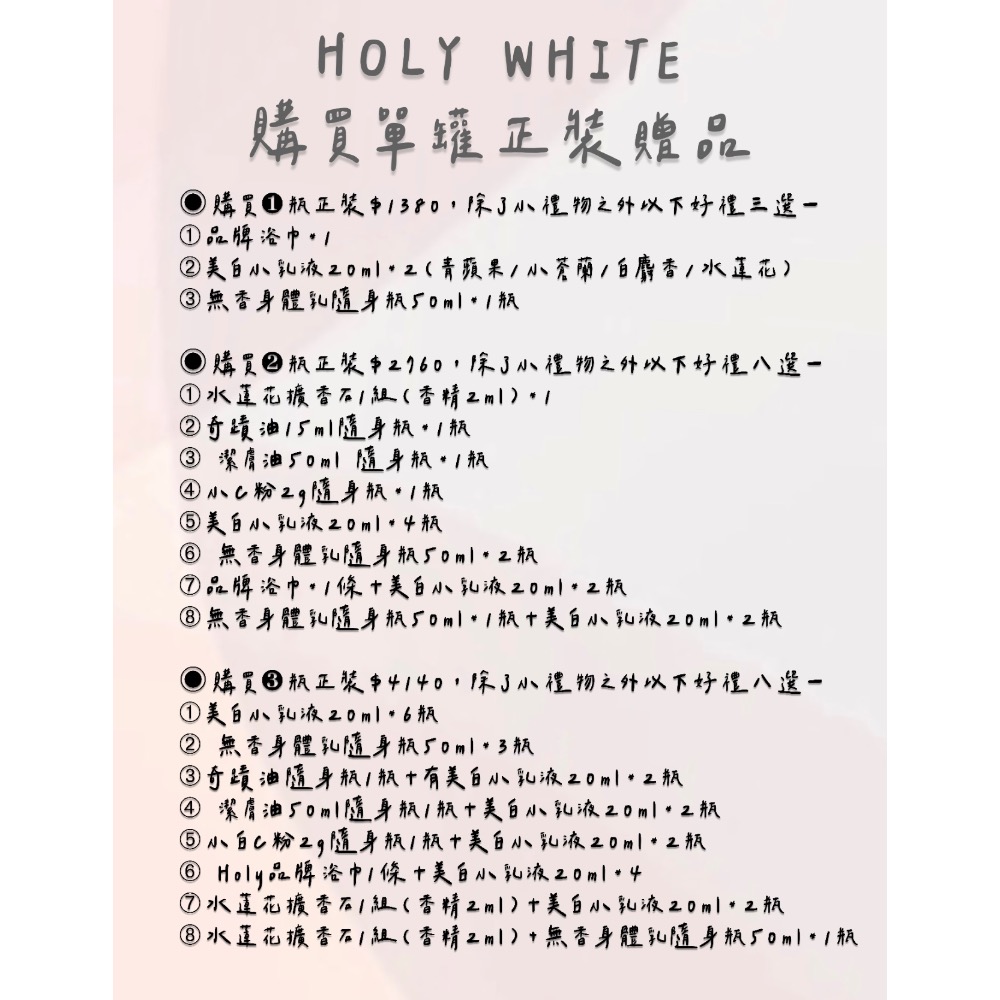 HOLY WHITE
購買單罐正裝贈品
◉購買❶瓶正裝$1380，除了小禮物之外以下好禮三選一
①品牌浴巾*1
②美白小乳液20ml*2(青蘋果/小蒼蘭/白麝香/水蓮花)
③無香身體乳隨身瓶50ml*1瓶
◉購買❷瓶正裝$2760，除了小禮物之外以下好禮八選一
①水蓮花擴香石1組(香精2ml)*1
②奇蹟油15ml隨身瓶*1瓶
③ 潔膚油50ml 隨身瓶*1瓶
④小C粉2g隨身瓶*1瓶
⑤美白小乳液20ml*4瓶
⑥ 無香身體乳隨身瓶50ml*2瓶
⑦品牌浴巾*1條+美白小乳液20ml*2瓶
⑧無香身體乳隨身瓶50ml*1瓶+美白小乳液20ml*2瓶
◉購買❸瓶正裝$4140，除了小禮物之外以下好禮八選一
①美白小乳液20ml*6瓶
② 無香身體乳隨身瓶50ml*3瓶
③奇蹟油隨身瓶1瓶+有美白小乳液20ml*2瓶
④ 潔膚油50ml隨身瓶1瓶+美白小乳液20ml*2瓶
⑤小白C粉2g隨身瓶1瓶+美白小乳液20ml*2瓶
⑥ Holy品牌浴巾1條+美白小乳液20ml*4
⑦水蓮花擴香石1組(香精2ml)+美白小乳液20ml*2瓶
⑧水蓮花擴香石1組(香精2ml)+無香身體乳隨身瓶50ml*1瓶